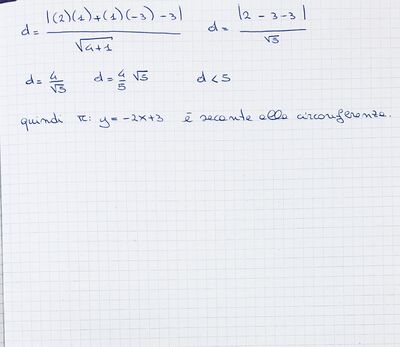 d = |(2)(1)+(1)(-3) -3| / √4+1 d = |2 - 3 - 3| / √5
d = 4/√5 d = 4/5 √5 d < 5
quindi r: y = -2x+3 è secante alla circonferenza.